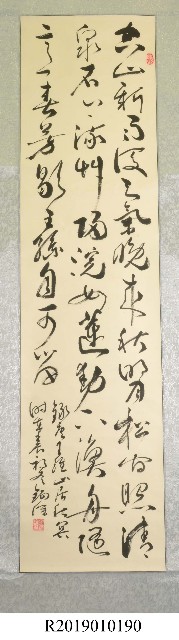 空山新雨後天氣晚來秋明月松間照清
泉石上流竹喧歸浣女蓮動下漁舟隨
意春芳歇王孫自可留
錄唐王維山居秋暝
時在
R2019010190